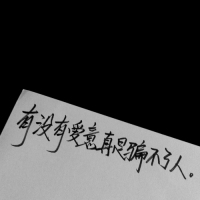 有没有爱意真是骗不了人。